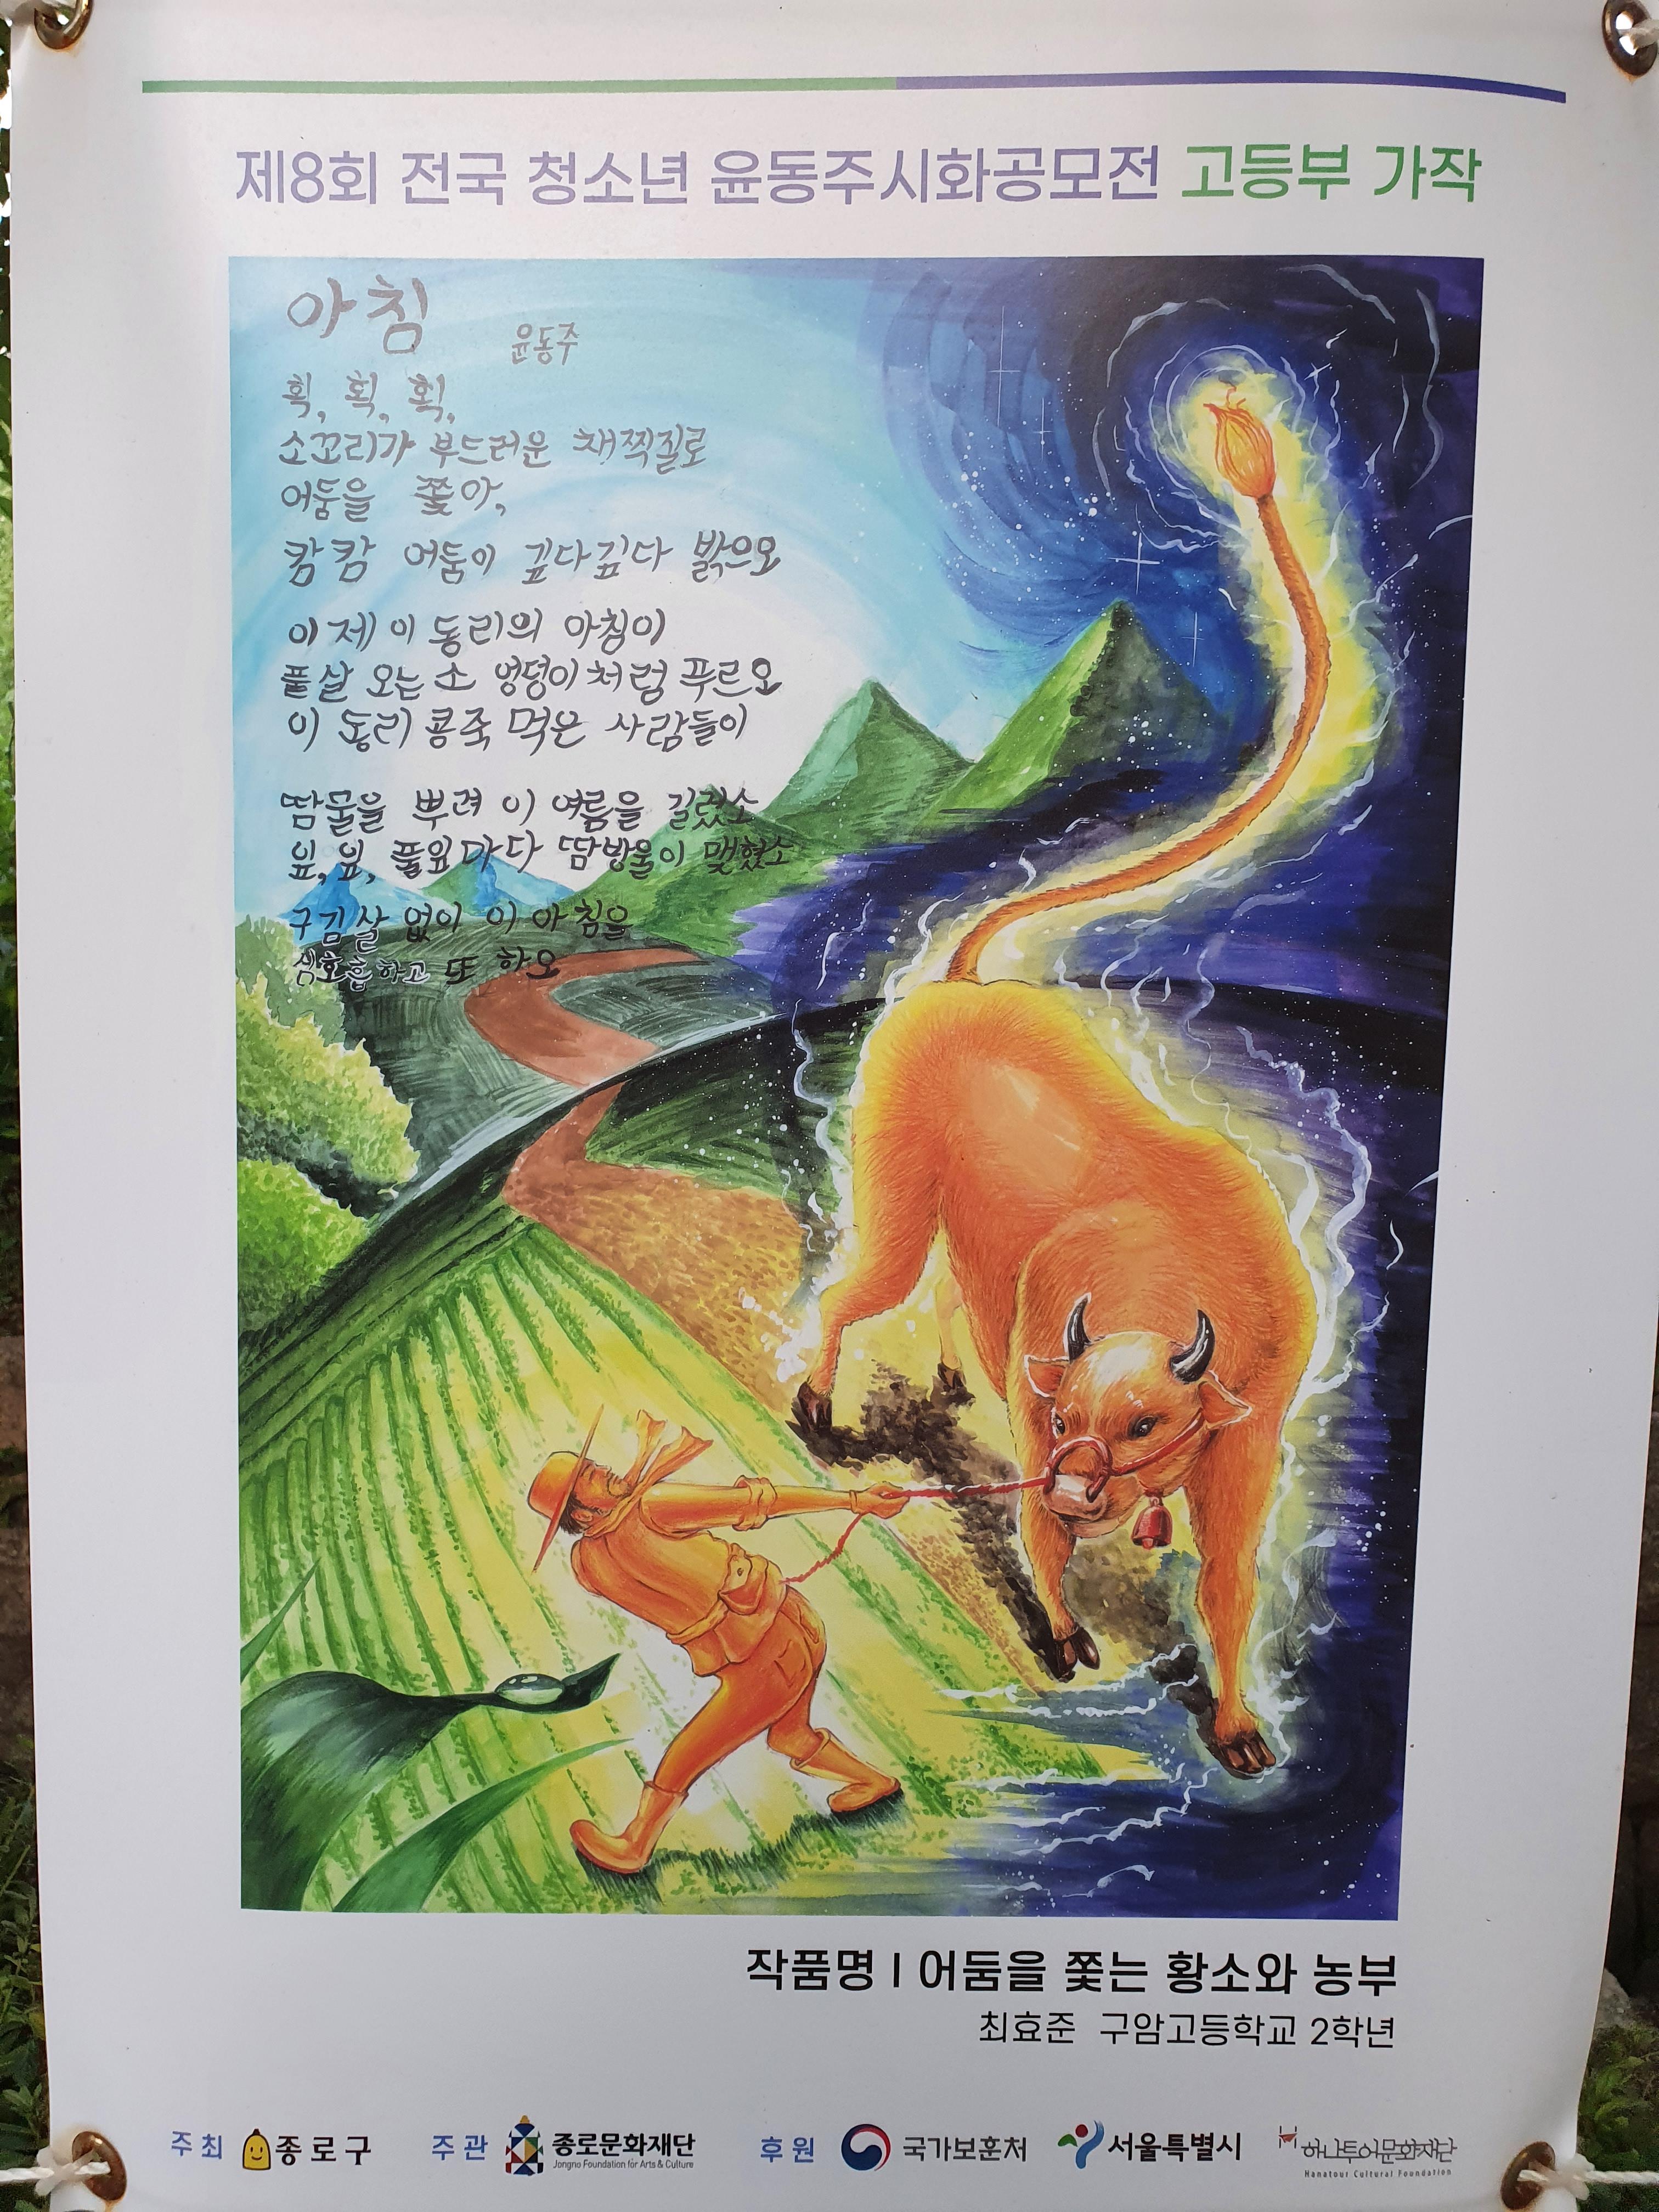 제8회 전국 청소년 윤동주시화공모전 고등부 가작
아침
윤동주
획, 획, 획,
소꼬리가 부드러운 채찍질로
어둠을 쫓아,
캄캄 어둠이 깊다깊다 밝으오
이제 이 동리의 아침이
풀살 오는 소 엉덩이처럼 푸르오
이 동리 콩죽 먹은 사람들이
땀물을 뿌려 이 여름을 길렀소
잎, 잎, 풀잎마다 땀방울이 맺혔소
구김살 없이 이 아침을
심호흡하고 또 하오
작품명 | 어둠을 쫓는 황소와 농부
최효준 구암고등학교 2학년
주최 종로구 주관 종로문화재단 후원 국가보훈처 서울특별시 하나투어문화재단
Jongno Foundation for Arts & Culture
Hanatour Cultural Foundation